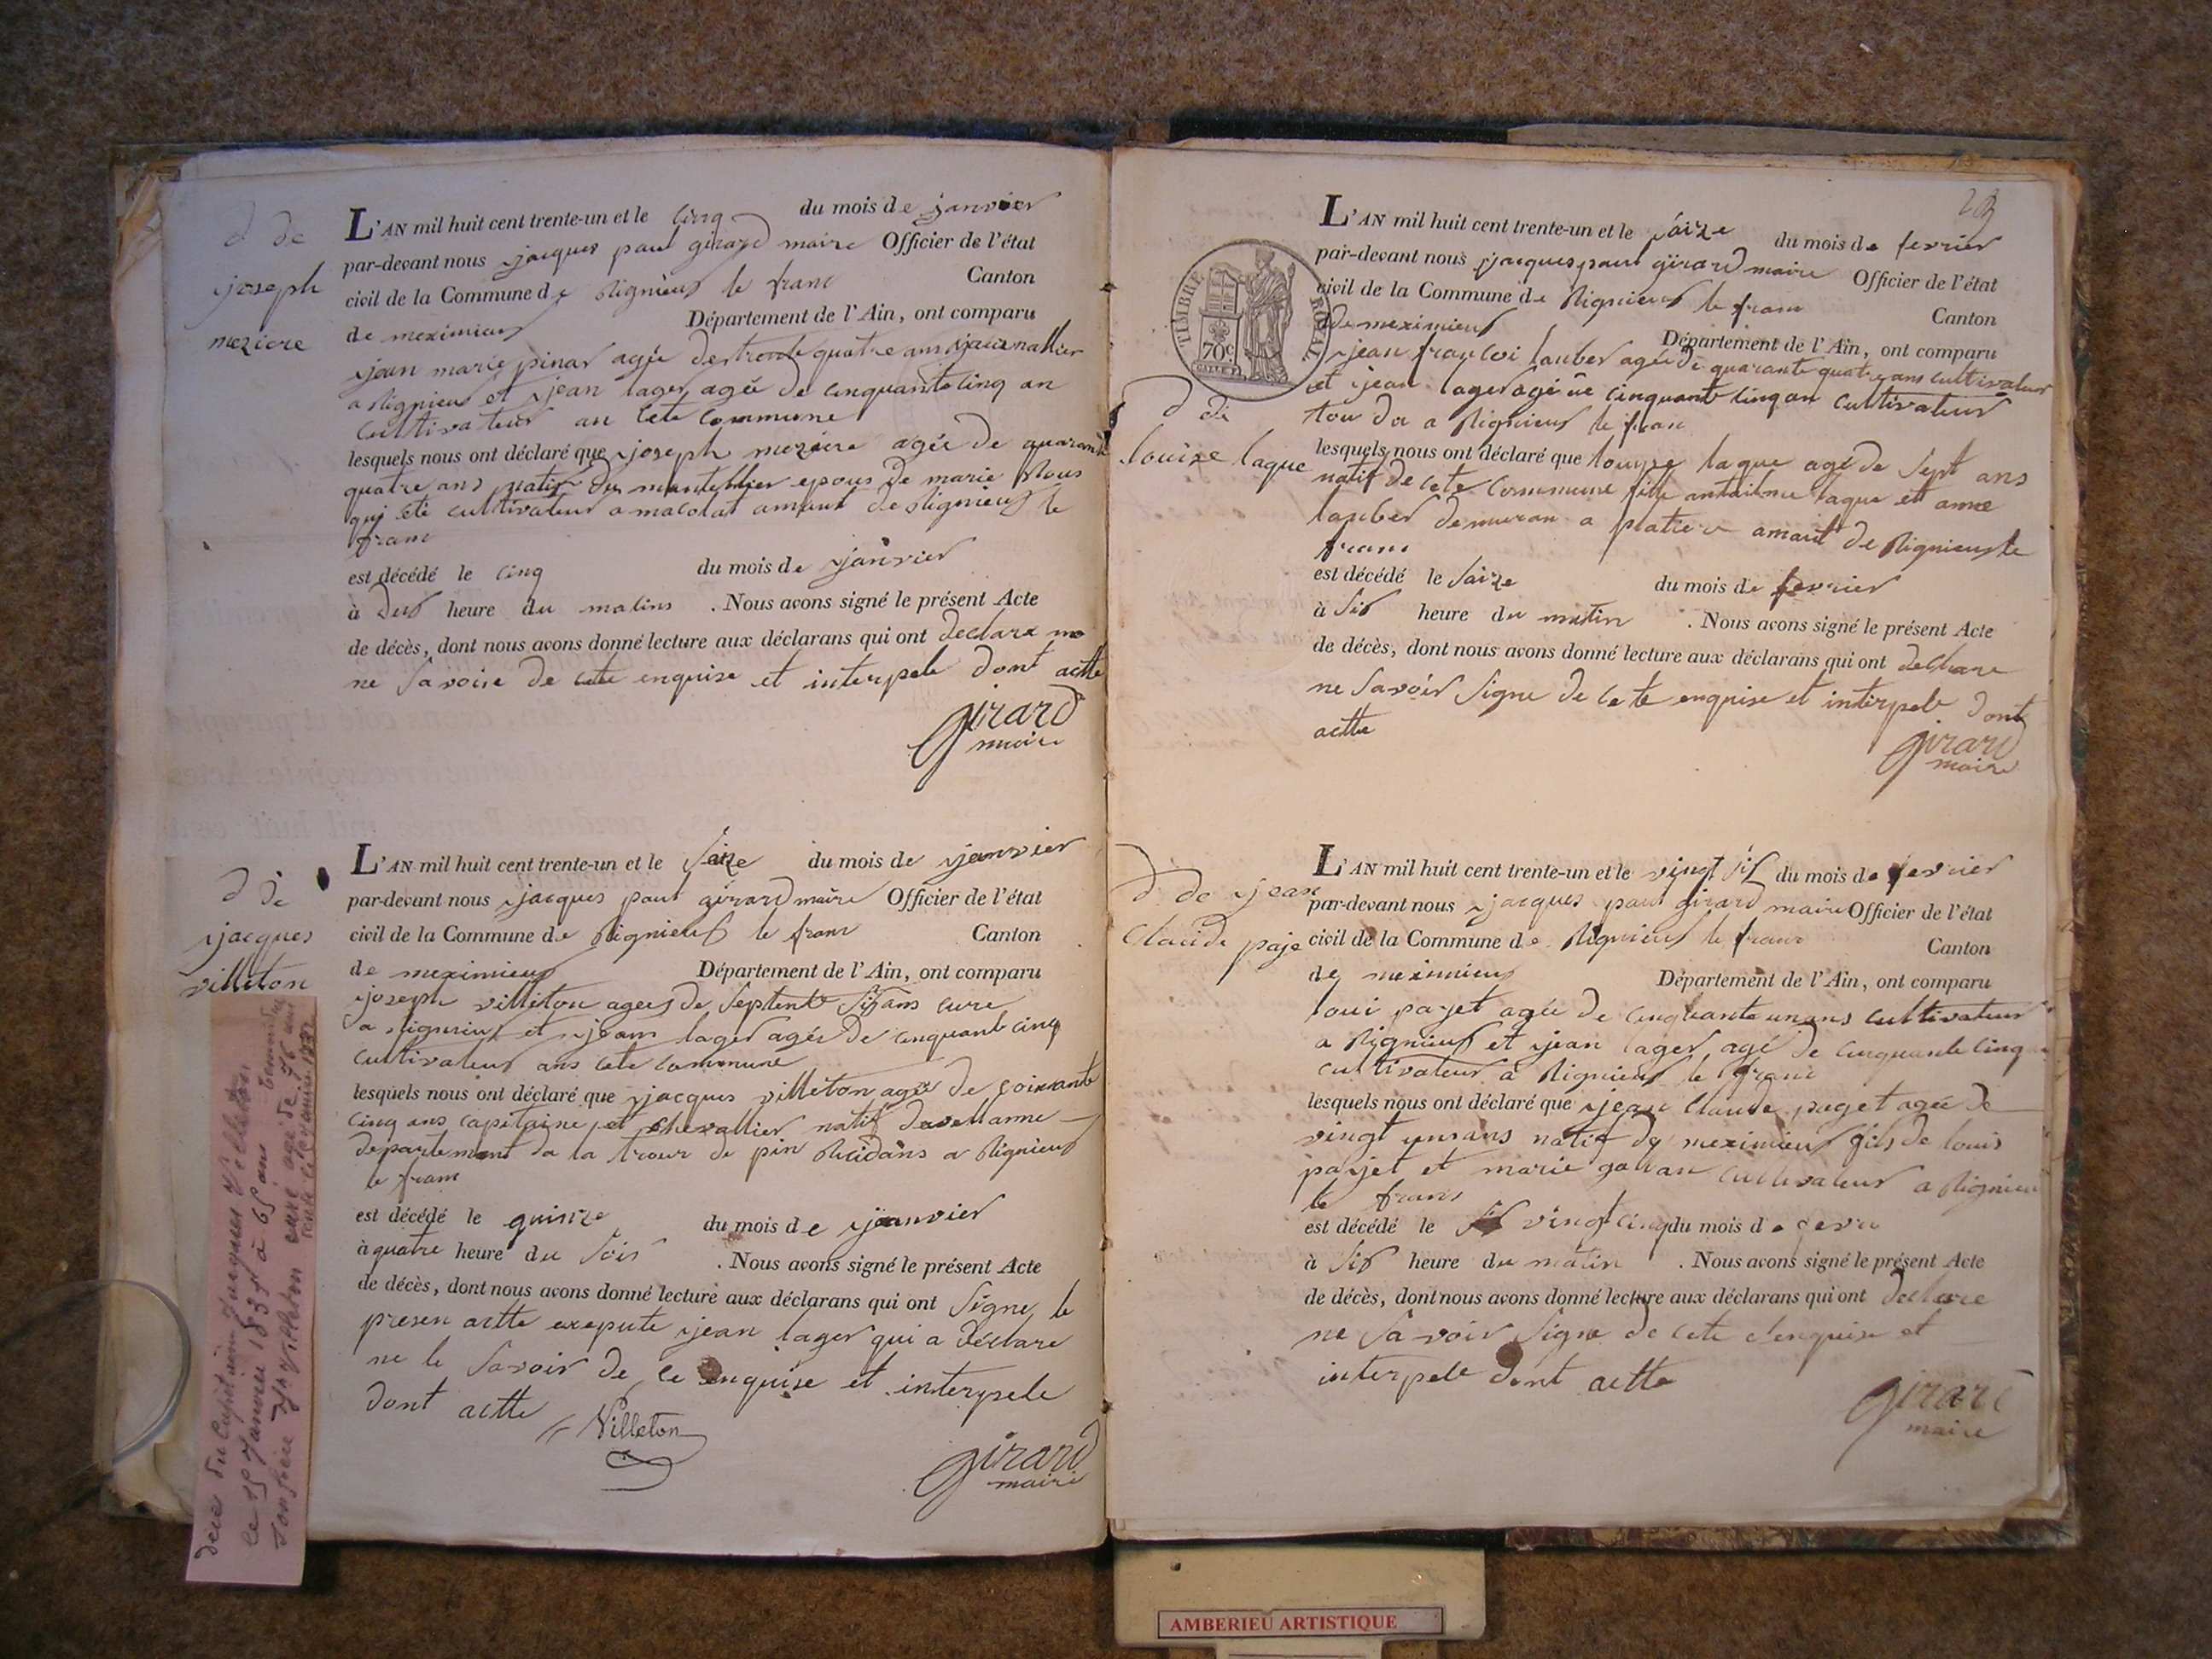 d de
joseph
meziere
L'AN mil huit cent trente-un et le cinq du mois de janvier
par-devant nous jacques paul girard maire Officier de l'état
civil de la Commune de Rignieux le franc Canton
de meximieux Département de l'Ain, ont comparu
jean marie pinar agée de trente quatre ans
a Rignieux et jean lager agée de cinquante cinq an
cultivateur an cete commune
lesquels nous ont déclaré que joseph meziere agée de quarante
quatre ans natif du montellier epous de marie
qui eté cultivateur a macolat amaut de Rignieux le
franc
est décédé le cinq du mois de janvier
à deux heure du matins . Nous avons signé le présent Acte
de décès, dont nous avons donné lecture aux déclarans qui ont declare
ne savoire de cete enquise et interpele dont actte
girard
maire
d de
jacques
villeton
L'AN mil huit cent trente-un et le seize du mois de janvier
par-devant nous jacques paul girard maire Officier de l'état
civil de la Commune de Rignieux le franc Canton
de meximieux Département de l'Ain, ont comparu
joseph villeton agees de septente six ans cure
a Rignieux et jean lager agée de cinquante cinq
cultivateur ans cete commune
lesquels nous ont déclaré que jacques villeton agée de soixante
cinq ans capitaine et chevallier natif
departement da la trour de pin Residans a Rignieux
le franc
est décédé le quinze du mois de janvier
à quatre heure du soir . Nous avons signé le présent Acte
de décès, dont nous avons donné lecture aux déclarans qui ont signe le
presen actte exepute jean lager qui a declare
ne le savoir de ce enquise et interpele
dont actte
Villeton
girard
maire
décé du Capitaine Jacques Villeton,
le 15 Janvier 1831 à 65 ans
son frère Jh Villeton curé agé de 76 ans
23
TIMBRE ROYAL
70c
L'AN mil huit cent trente-un et le saize du mois de fevrier
par-devant nous jacques paul girard maire Officier de l'état
civil de la Commune de Rignieux le franc Canton
de meximieux Département de l'Ain, ont comparu
jean françoi lauber agée de quarante quatre ans cultivateur
et jean lager agé de cinquante cinq an cultivateur
tou du a Rignieux le franc
d de
louise laque
lesquels nous ont déclaré que louyse laque agé de sept ans
natif de cete commune fille antoinne laque et anne
lauber demuran a platiere amaut de Rignieux le
franc
est décédé le saize du mois de fevrier
à six heure du matin . Nous avons signé le présent Acte
de décès, dont nous avons donné lecture aux déclarans qui ont declare
ne savoir signe de cete enquise et interpele dont
actte
girard
maire
d de jean
claude paje
L'AN mil huit cent trente-un et le vingt six du mois de fevrier
par-devant nous jacques paul girard maire Officier de l'état
civil de la Commune de Rignieux le franc Canton
de meximieux Département de l'Ain, ont comparu
loui pajet agée de cinquante un ans cultivateur
a Rignieux et jean lager agé de cinquante cinq
cultivateur a Rignieux le franc
lesquels nous ont déclaré que jean claude paget agée de
vingt un ans natif de meximieux fils de louis
pajet et marie cultivateur a Rignieu
le franc
est décédé le vingt cinq du mois de fevri
à six heure du matin . Nous avons signé le présent Acte
de décès, dont nous avons donné lecture aux déclarans qui ont declare
ne savoir signe de cete denquise et
interpele dont actte
girard
maire
AMBERIEU ARTISTIQUE